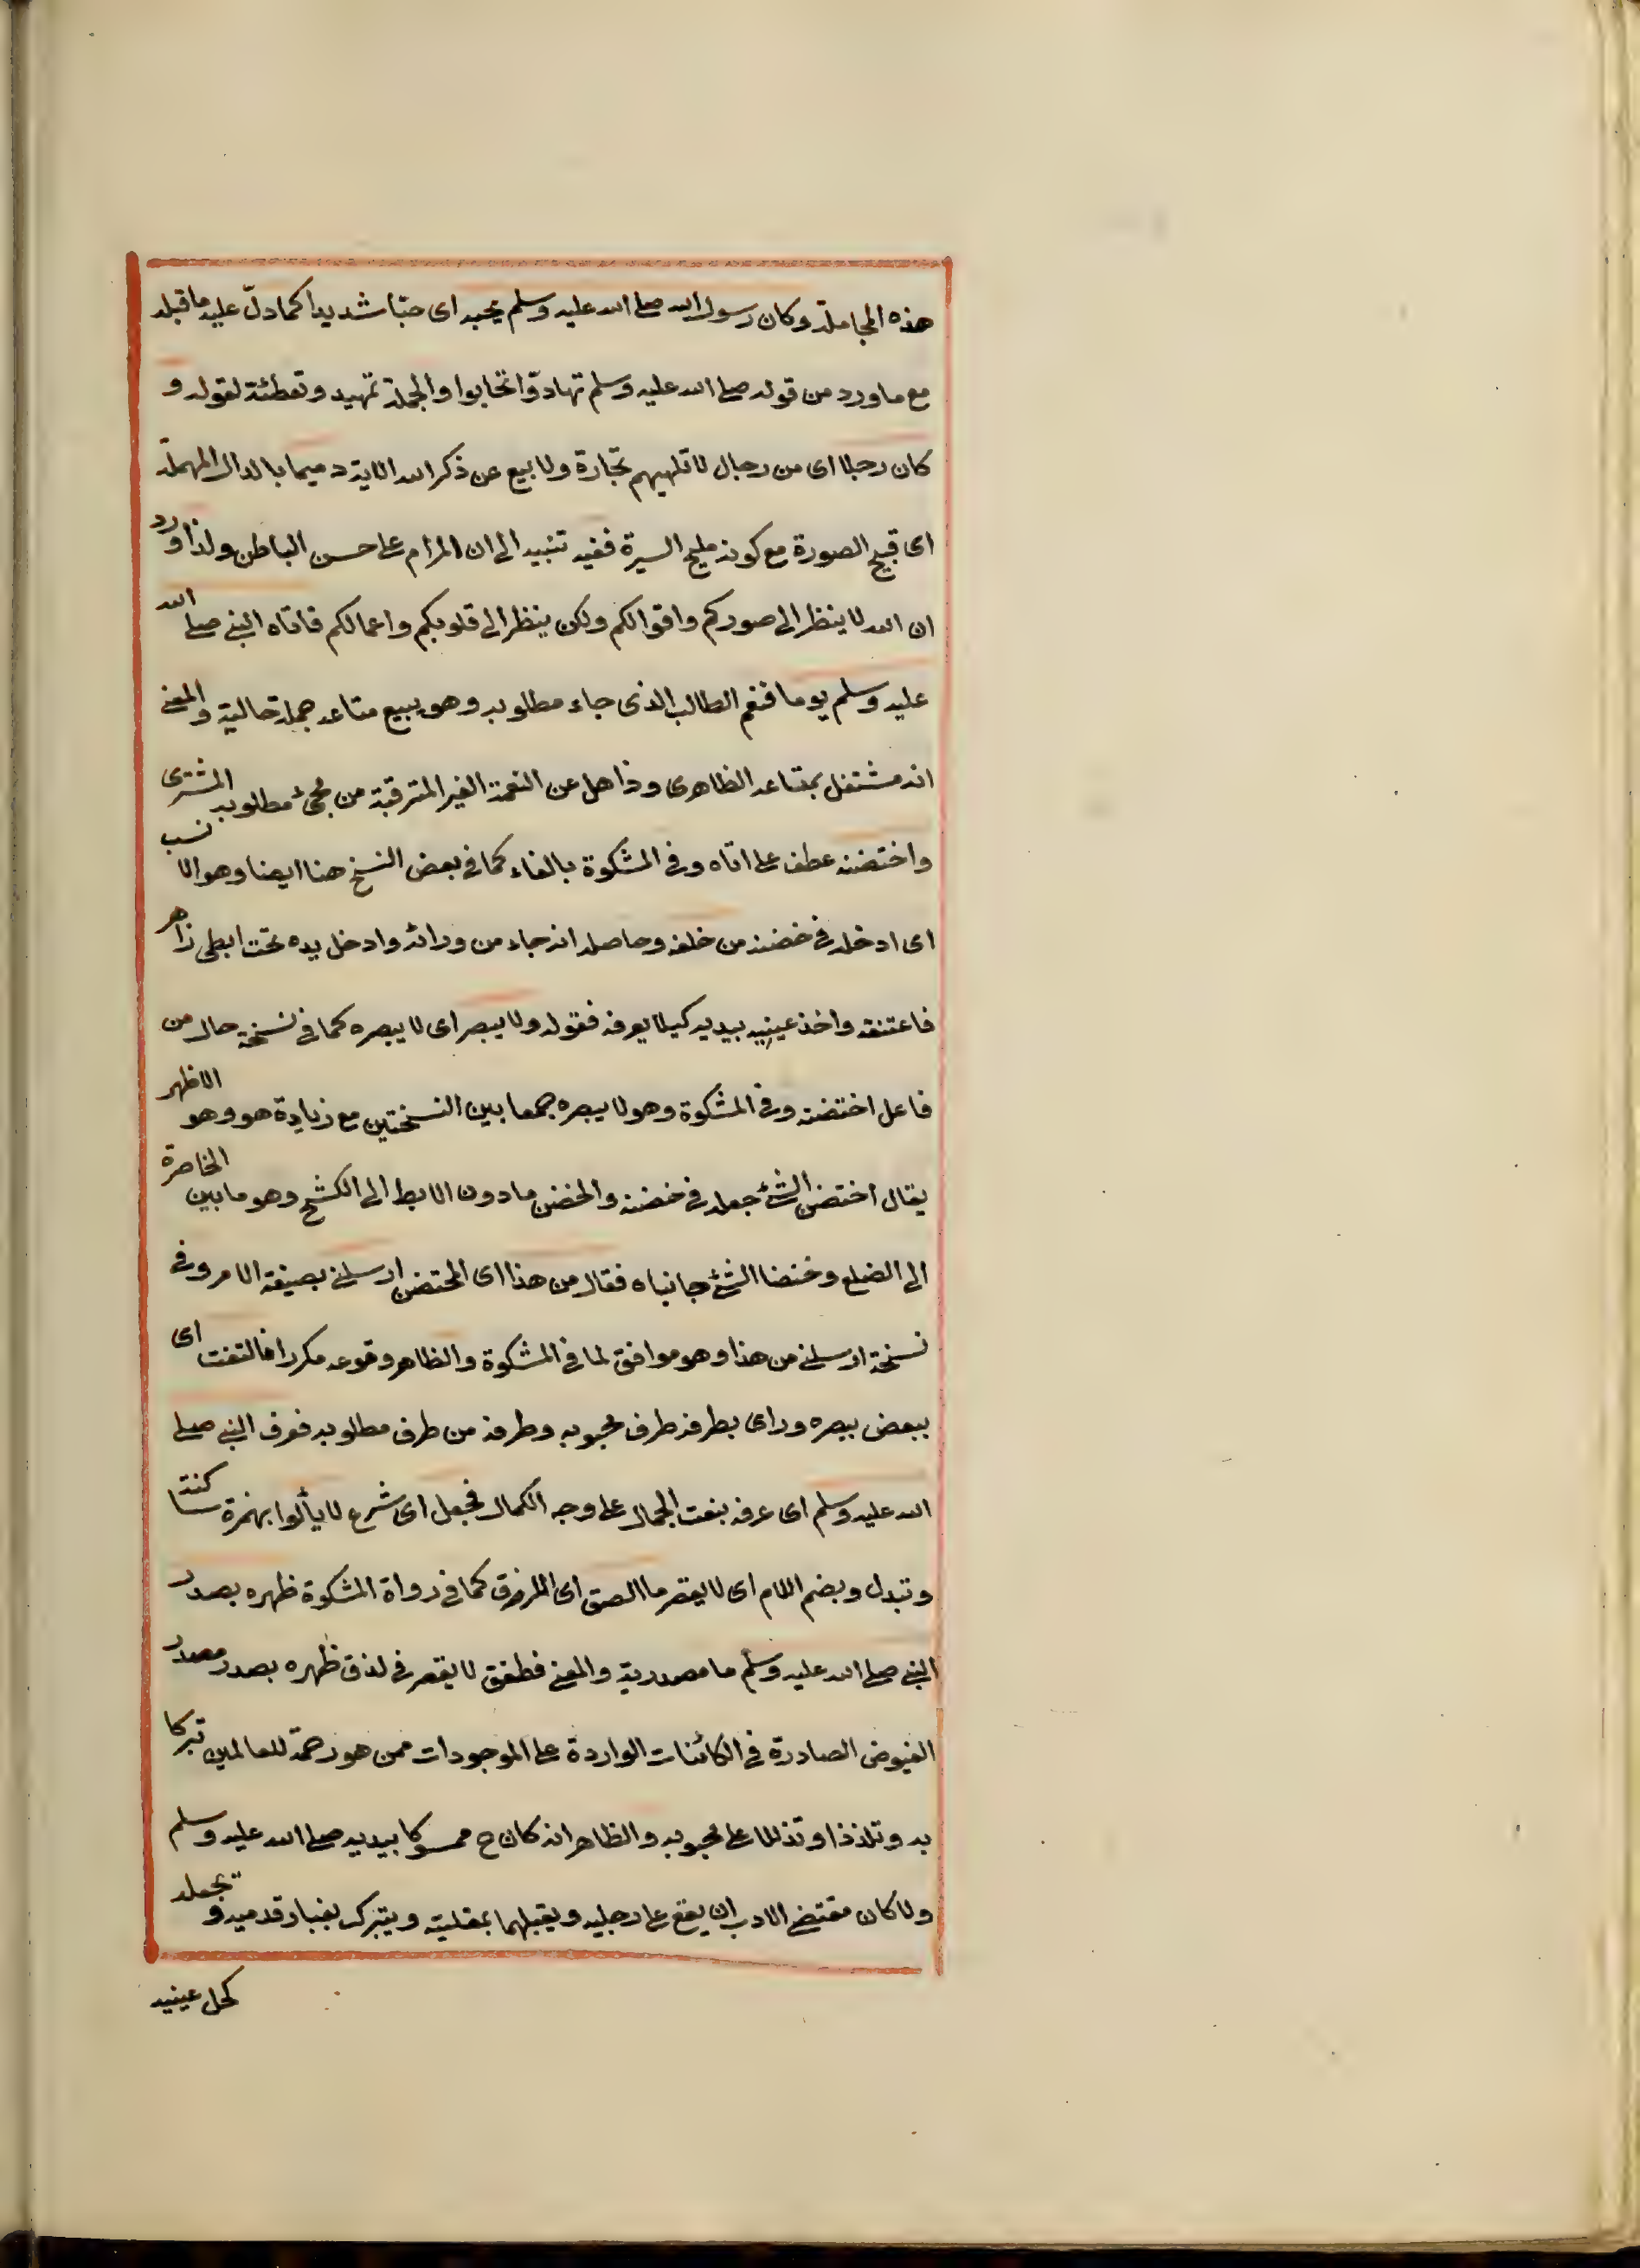 هذه المجاملة وكان رسول الله صلى الله عليه وسلم يحبه اى حبّا شديدا كما دلّ عليه ما قبله
مع ما ورد من قوله صلى الله عليه وسلم تهادوّا تحابوا والجملة تمهيد وتعطئة لقوله و
كان رجلا اى من رجال لا تلهيهم تجارة ولا بيع عن ذكر الله الاية دميما بالدال المهملة
اى قبيح الصورة مع كونه مليح السيرة ففيه تنبيه الى ان المرام على حسن الباطن ولذا ورد
ان الله لا ينظر الى صوركم واقوالكم ولكن ينظر الى قلوبكم واعمالكم فاتاه النبى صلى الله
عليه وسلم يوما فنعم الطالب الذى جاء مطلوبه وهو يبيع متاعه جملة حالية والمعنى
انه مشتغل بمتاعه الظاهرى وذاهل عن النعمة الغير المترقبة من مجئ مطلوبه المشترى
واختضنه عطف على اتاه وفى المشكوة بالفاء كما فى بعض النسخ هنا ايضا وهو الانسب
اى ادخله فى خضنه من خلفه وحاصله انه جاء من ورائه وادخل يده تحت ابطى زاهر
فاعتنقه واخذ عينيه بيديه كيلا يعرفه فقوله ولا يبصر اى لا يبصره كما فى نسخة حال من
فاعل اختضنه وفى المشكوة وهو لا يبصره جمعا بين النسختين مع زيادة هو وهو الاظهر
يقال اختضن الشئ جعله فى خضنه والخضن ما دون الابط الى الكشح وهو ما بين الخاصرة
الى الضلع وخضنا الشئ جانباه فقال من هذا اى المحتضن ارسلنى بصيغة الامر وفى
نسخة ارسلنى من هذا وهو موافق لما فى المشكوة والظاهر وقوعه مكررا فالتفت اى
ببعض بصره وراى بطرفه طرف محبوبه وطرفه من طرف مطلوبه فعرف النبى صلى
الله عليه وسلم اى عرفه بنعت الجمال على وجه الكمال فجعل اى شرع لا يألوا بهمزة ساكنة
وتبدل وبضم اللام اى لا يقصر ما الصق اى الزق كما فى رواة المشكوة ظهره بصدر
النبى صلى الله عليه وسلم ما مصدرية والمعنى فطفق لا يقصر فى لذق ظهره بصدر مصدر
الفيوض الصادرة فى الكائنات الواردة على الموجودات ممن هو رحمة للعالمين تبركا
به وتلذذا وتذللا على محبوبه والظاهر انه كان ح ممسوكا بيديه صلى الله عليه وسلم
ولا كان مقتضى الادب ان يقع على رجليه ويقبلهما بمقلتيه ويتبرك بغبار قدميه و تجعله
كحل عينيه